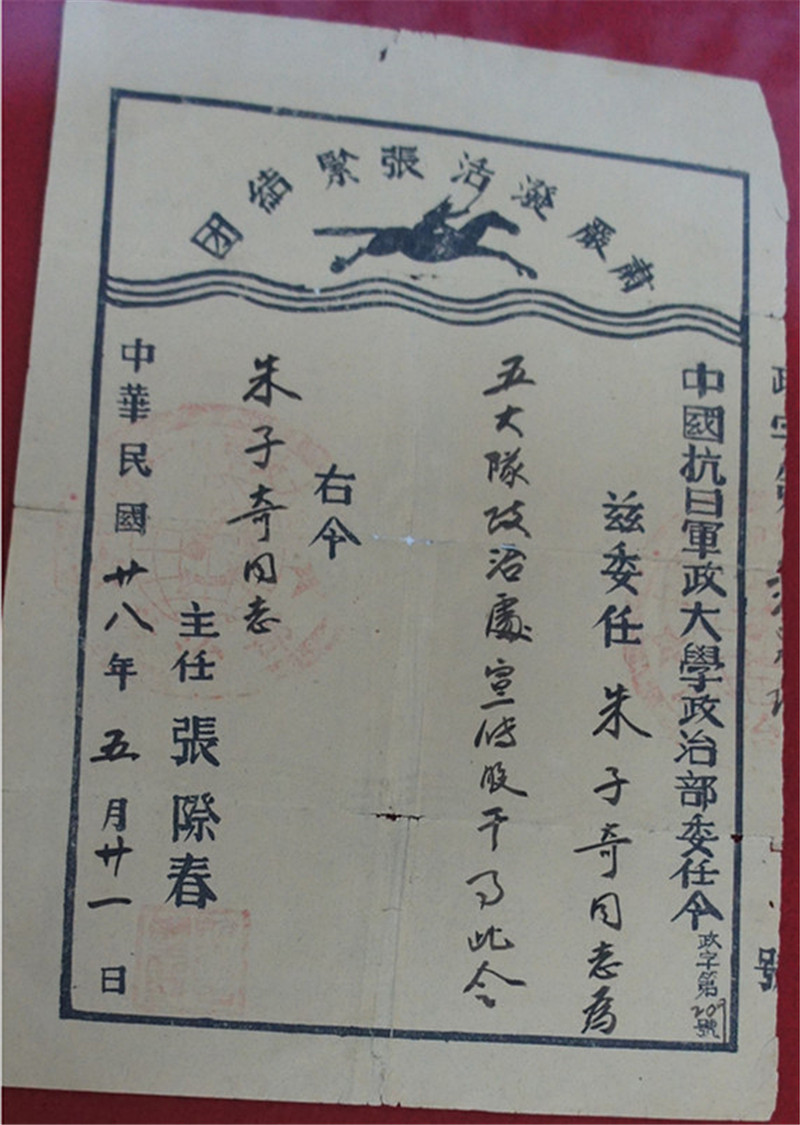 团結緊張活潑嚴肅
號
中國抗日軍政大學政治部委任令 政字第209號
茲委任 朱子奇同志為
五大隊政治處宣傳股干事此令
右令
朱子奇同志
主任 張際春
中華民國廿八年五月廿一日